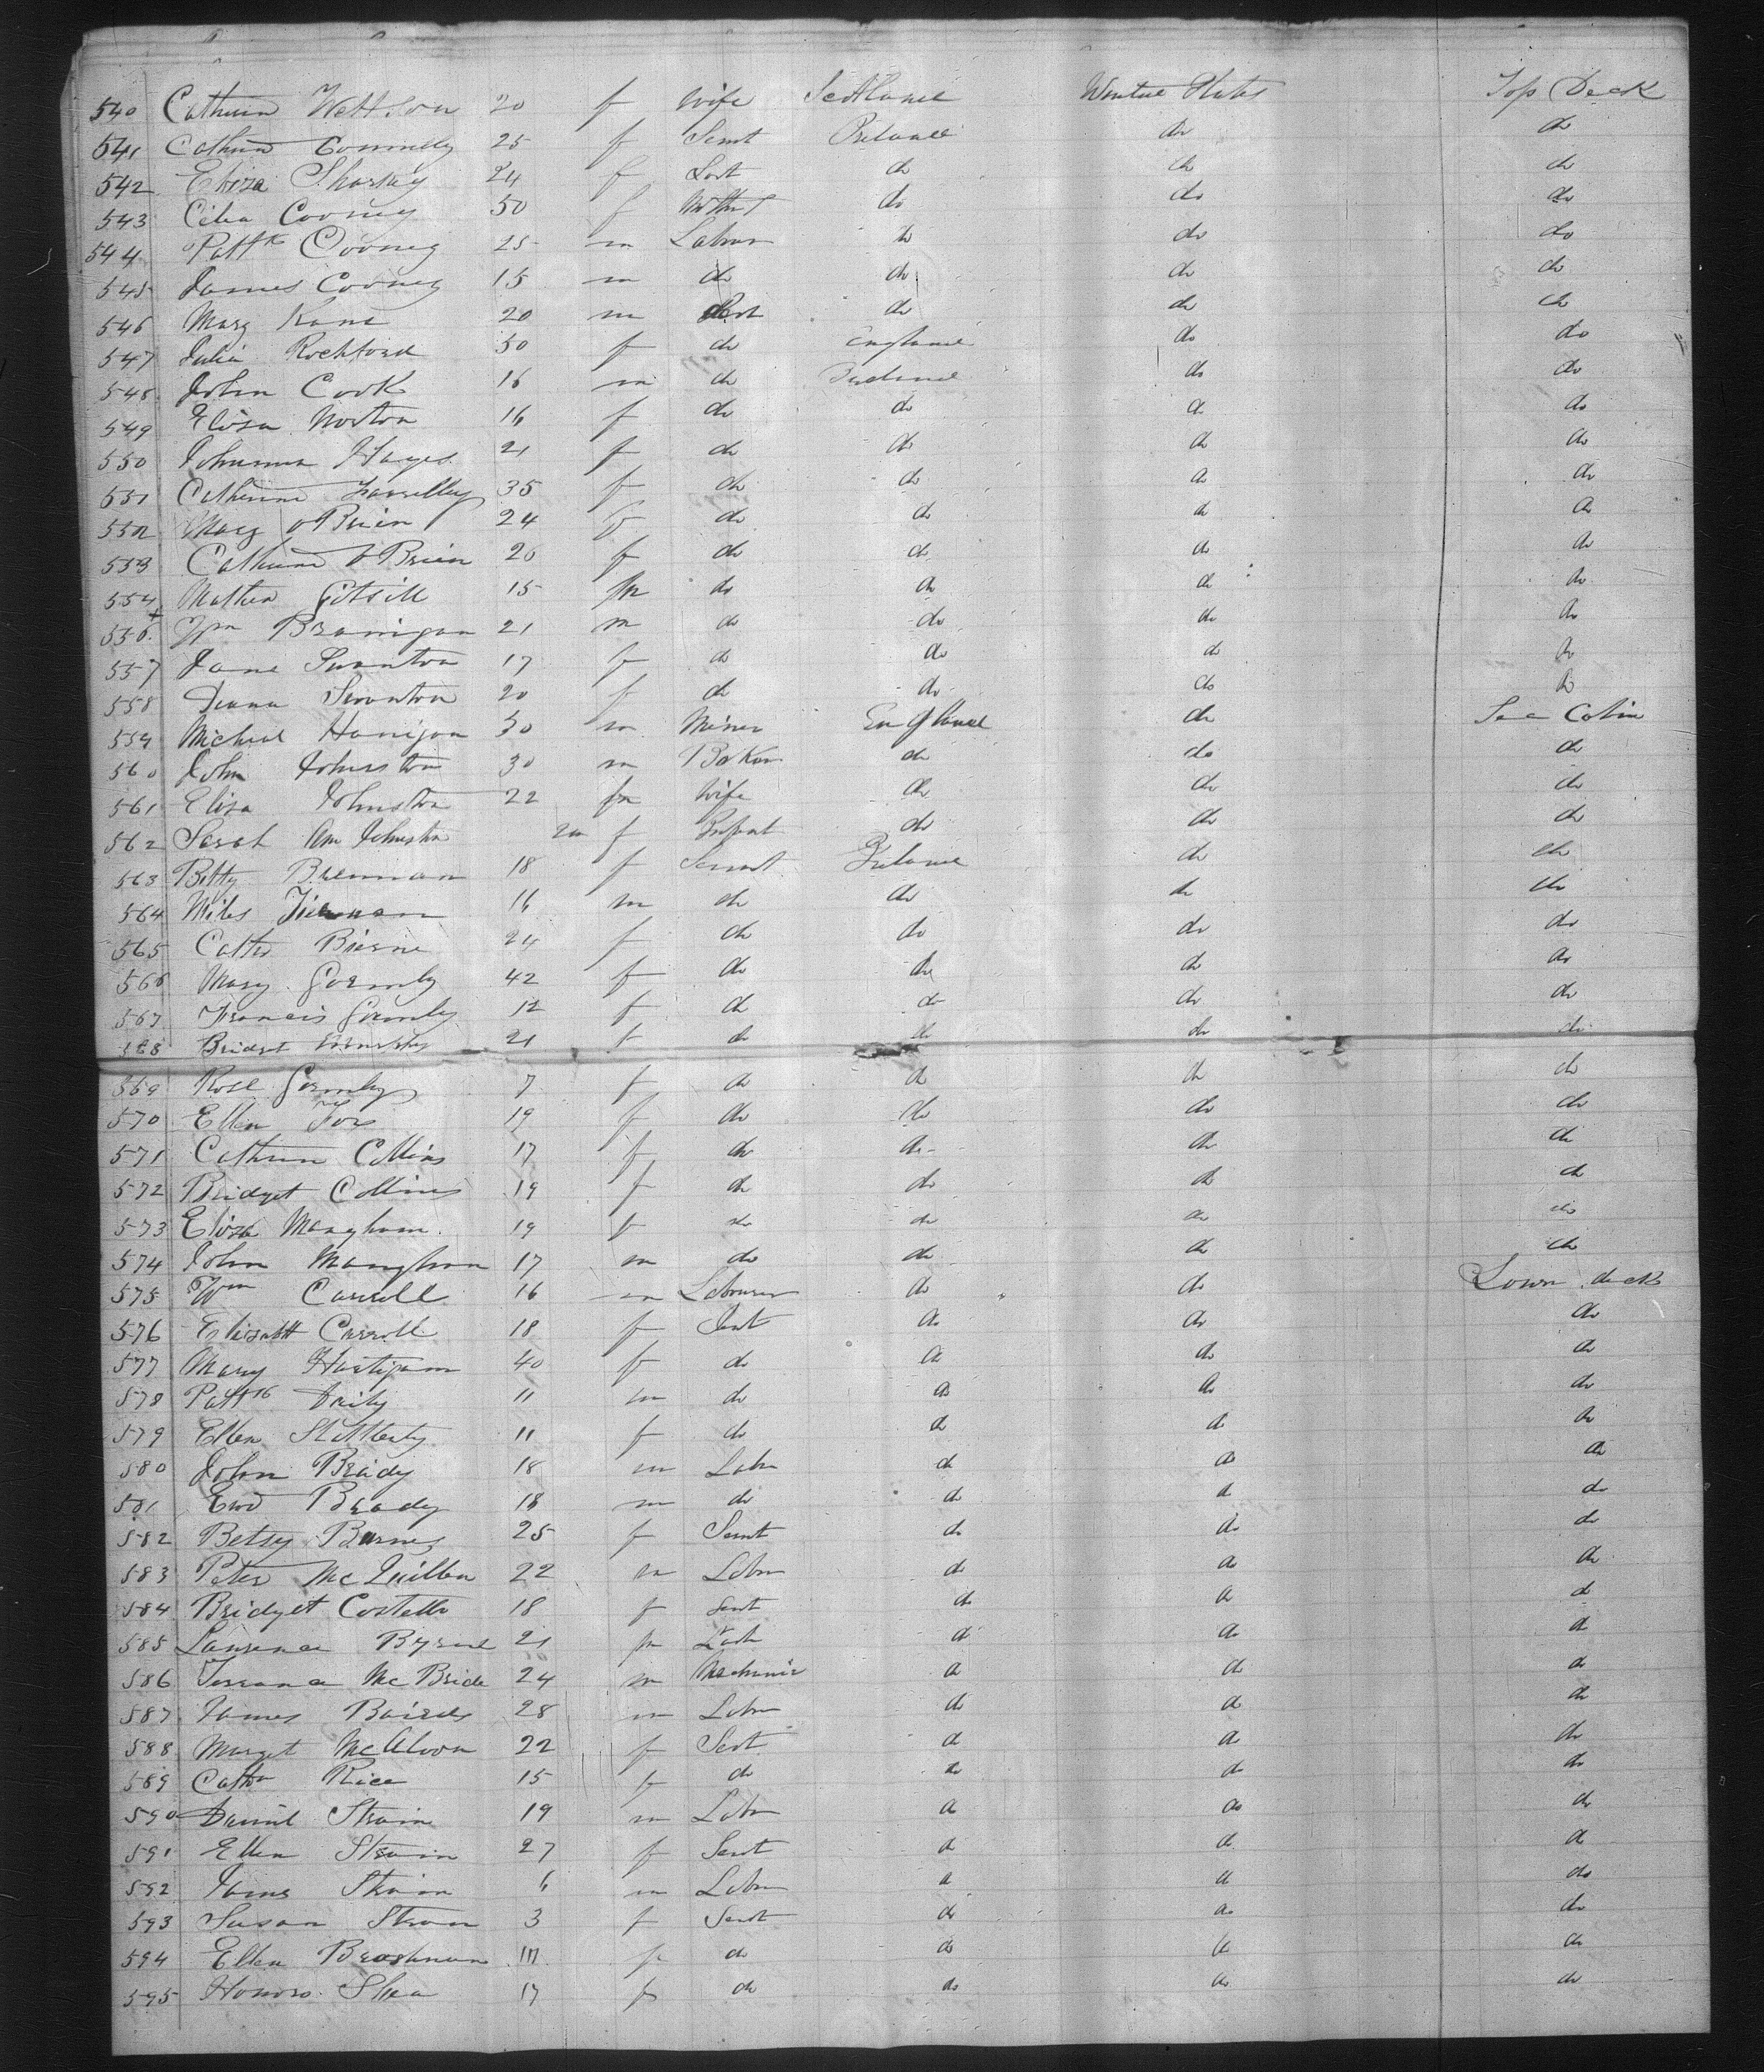 540 Cathrin Wattson 20 f wife Scotland United States Top Deck
541 Cathrin Connelly 25 f Sernt Ireland do do
542 Eliza Sharkey 24 f Sert do do do
543 Celia Cooney 50 f Mother do do do
544 Pattk Cooney 25 m Labrer do do do
545 James Cooney 15 m do do do do
546 Mary Kane 20 m Sert do do do
547 Julia Rochford 30 f do England do do
548 John Cook 16 m do Ireland do do
549 Eliza Norton 16 f do do do do
550 Johanna Hayes 21 f do do do do
551 Catherine Farrelley 35 f do do do do
552 Mary oBrien 24 f do do do do
553 Cathrine oBrien 20 f do do do do
554 Mathew 15 m do do do do
556 Wm Branigan 21 m do do do do
557 Jane Swanton 17 f do do do do
558 Swanton 20 f do do do do
559 Micheal Hanigan 30 m Miner England do Sec Cabin
560 John Johnston 30 m Baker do do do
561 Eliza Johnston 22 fm Wife do do do
562 Sarah Ann Johnston 2m f Infant do do do
563 Betty Brennan 18 f Servant Ireland do do
564 Miles Tiernan 16 m do do do do
565 Cathr Bierne 24 f do do do do
566 Mary Gormly 42 f do do do do
567 Francis Gormley 12 f do do do do
568 Bridget 21 f do do do do
569 Rose Gormley 7 f do do do do
570 Ellen Fox 19 f do do do do
571 Cathrin Collins 17 f do do do do
572 Bridget Collins 19 f do do do do
573 Eliza Manghan 19 f do do do do
574 John Manghan 17 m do do do do
575 Wm Carroll 16 m Labourer do do Lower deck
576 Elizabth Carroll 18 f Sert do do do
577 Mary Hartigan 40 f do do do do
578 Pattk 11 m do do do do
579 Ellen Slatterly 11 f do do do do
580 John Brady 18 m Labr do do do
581 Ewd Brady 18 m do do do do
582 Betsy Burnes 25 f Sernt do do do
583 Peter McQuillen 22 m Labr do do do
584 Bridget Costello 18 f Sernt do do do
585 Laurence Byrne 21 m do do do
586 Terrance McBride 24 m Mechanic do do do
587 James 28 m Labr do do do
588 Marget McAloon 22 f Sert do do do
589 Cathn Rice 15 f do do do do
590 Daniel Strain 19 m Labr do do do
591 Ellen Strain 27 f Sernt do do do
592 James Strain 6 m Labr do do do
593 Susan Stran 3 f Sernt do do do
594 Ellen Brashnan 17 f do do do do
595 Honoro Shea 17 f do do do do